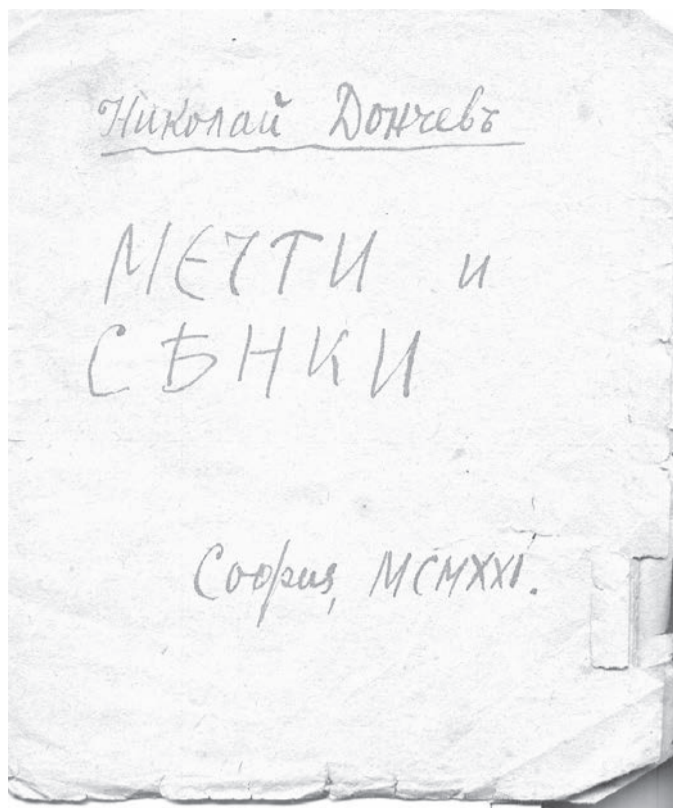 Николай Дончевъ
МЕЧТИ и
СѢНКИ
София, MCMXXI.